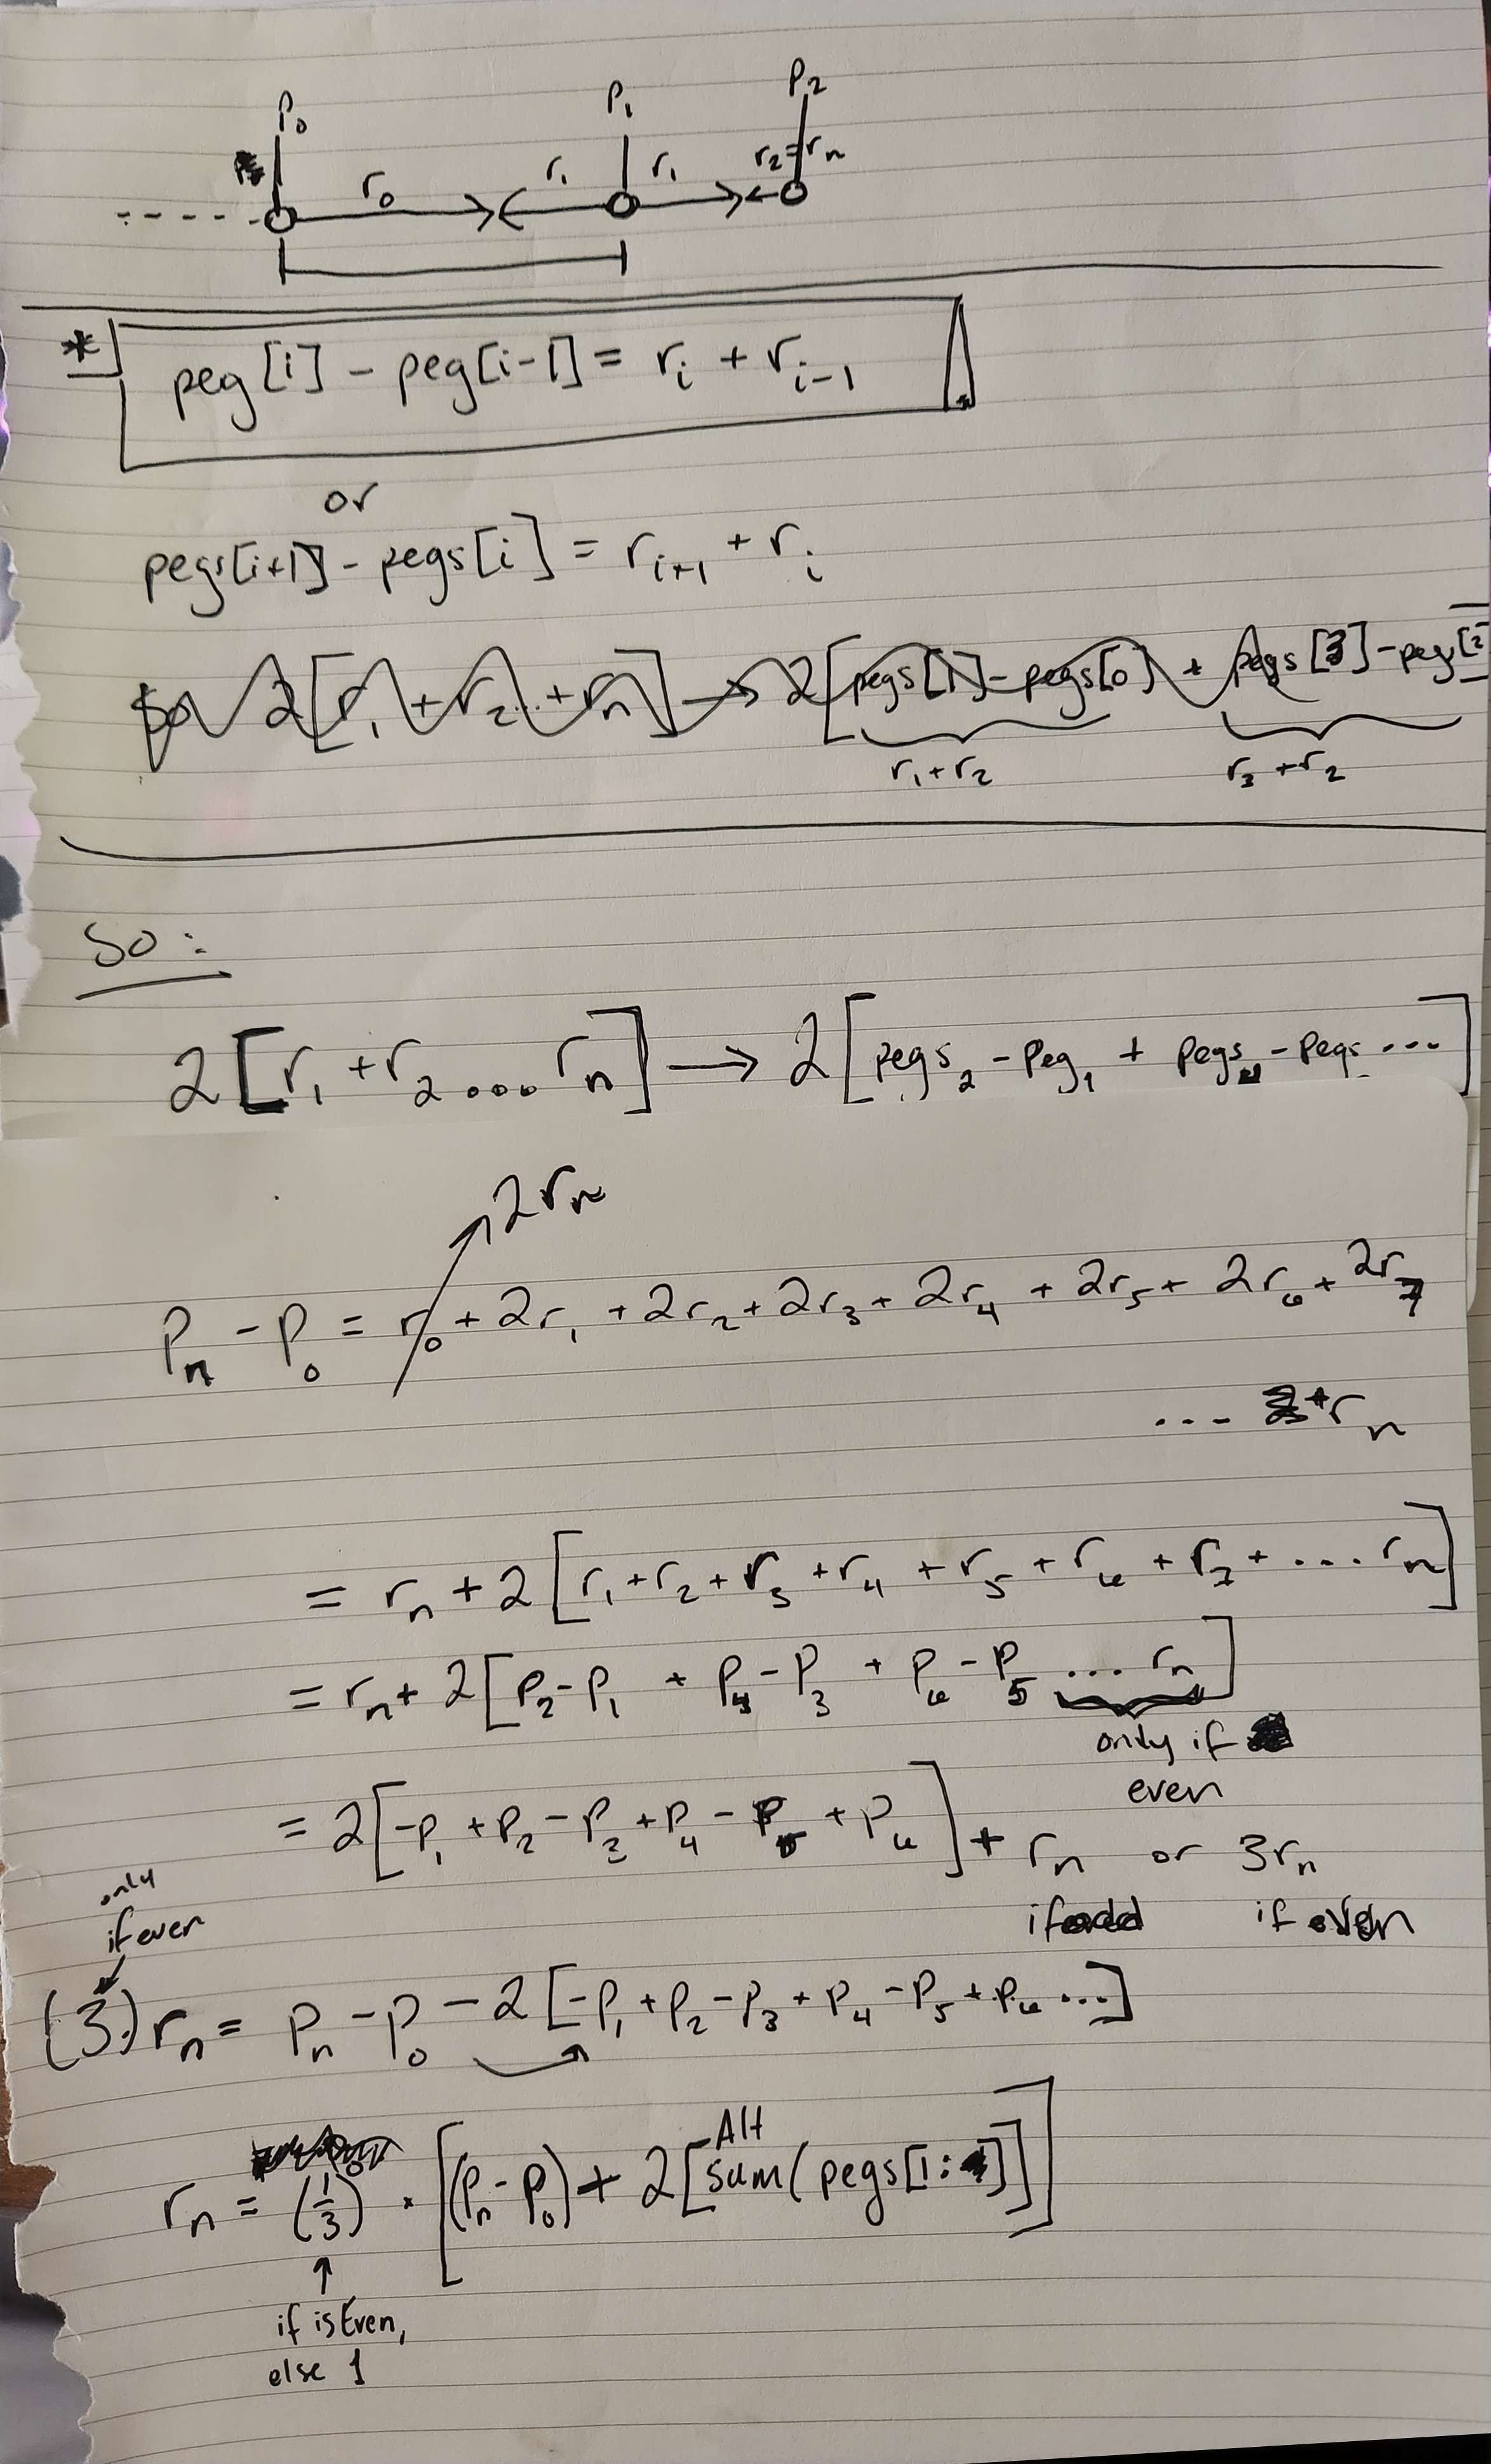 P₀ P₁ P₂
r₀ r₁ r₁ r₂=rₙ
* peg[i] - peg[i-1] = rᵢ + rᵢ₋₁
or
pegs[i+1] - pegs[i] = rᵢ₊₁ + rᵢ
So 2[r₁+r₂..+rₙ] → 2[pegs[1]-pegs[0] + pegs[3]-pegs[2]
r₁+r₂ r₃+r₂
So:
2[r₁+r₂...rₙ] → 2[pegs₂-peg₁ + pegs₄-pegs...]
2rₙ
Pₙ - P₀ = r₀ + 2r₁ + 2r₂ + 2r₃ + 2r₄ + 2r₅ + 2r₆ + 2r₇
... + rₙ
= rₙ + 2[r₁+r₂+r₃+r₄+r₅+r₆+r₇+....rₙ]
= rₙ + 2[P₂-P₁ + P₄-P₃ + P₆-P₅ ... rₙ]
only if
even
= 2[-P₁+P₂-P₃+P₄-P₅+P₆] + rₙ or 3rₙ
if odd if even
only
if even
(3)rₙ = Pₙ - P₀ - 2[-P₁+P₂-P₃+P₄-P₅+P₆...]
Alt
rₙ = (1/3) · [(Pₙ-P₀) + 2[sum(pegs[1:]]]
if isEven,
else 1